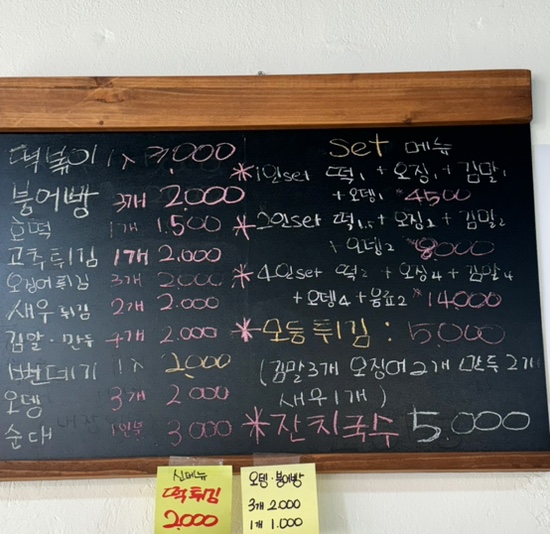 떡볶이 1人 3,000
붕어빵 3개 2,000
호떡 1개 1.500
고추튀김 1개 2.000
오징어튀김 3개 2.000
새우튀김 2개 2.000
김말·만두 4개 2.000
번데기 1人 2,000
오뎅 3개 2.000
순대 1인분 3000
Set 메뉴
*1인set 떡1 + 오징1 + 김말1
+ 오뎅1 4500
*2인set 떡1.5 + 오징2 + 김말2
+ 오뎅2 8,000
*4인set 떡2 + 오징4 + 김말4
+ 오뎅4 + 음료2 14,000
*모듬튀김 : 5,000
(김말3개 오징어2개 만두2개
새우1개)
*잔치국수 5,000
신메뉴
떡튀김
2,000
오뎅·붕어빵
3개 2.000
1개 1.000